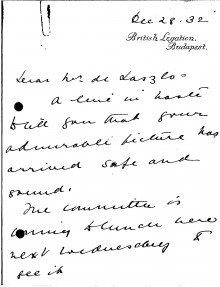 Dec 28. 32
British Legation,
Budapest.
Dear Mr. de Laszlo
A line in haste
to tell you that your
admirable picture has
arrived safe and
sound.
The committee is
coming to lunch here
next Wednesday to
see it